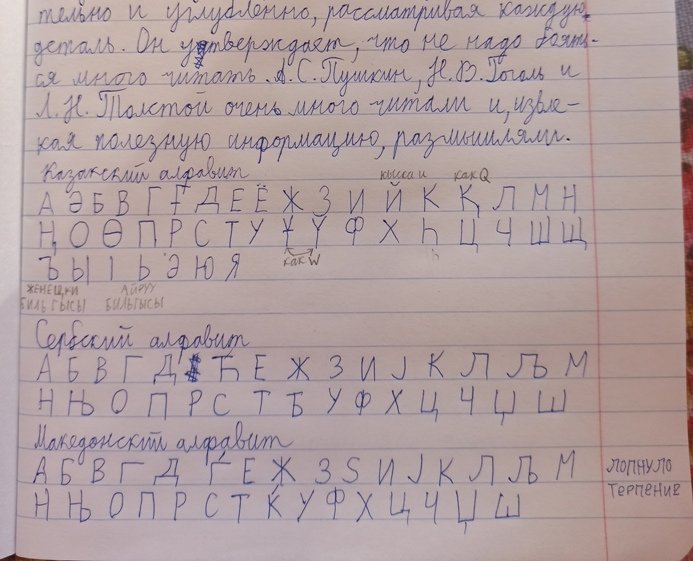 тельно и углубленно, рассматривая каждую
деталь. Он утверждает, что не надо боять-
ся много читать. А.С. Пушкин, Н.В. Гоголь и
Л.Н. Толстой очень много читали и, извле-
кая полезную информацию, размышляли.
Казахский алфавит
кысса и как Q
А Ә Б В Г Ғ Д Е Ё Ж З И Й К Қ Л М Н
Ң О Ө П Р С Т У Ұ Ү Ф Х Һ Ц Ч Ш Щ
как W
Ъ Ы І Ь Э Ю Я
ЖЕНЕШКИ АЙРУУ
БИЛЬГЫСЫ БИЛЬГЫСЫ
Сербский алфавит
А Б В Г Д Ђ Е Ж З И Ј К Л Љ М
Н Њ О П Р С Т Б У Ф Х Ц Ч Џ Ш
Македонский алфавит
А Б В Г Д Ѓ Е Ж З Ѕ И Ј К Л Љ М
Н Њ О П Р С Т Ќ У Ф Х Ц Ч Џ Ш
ЛОПНУЛО
ТЕРПЕНИЕ